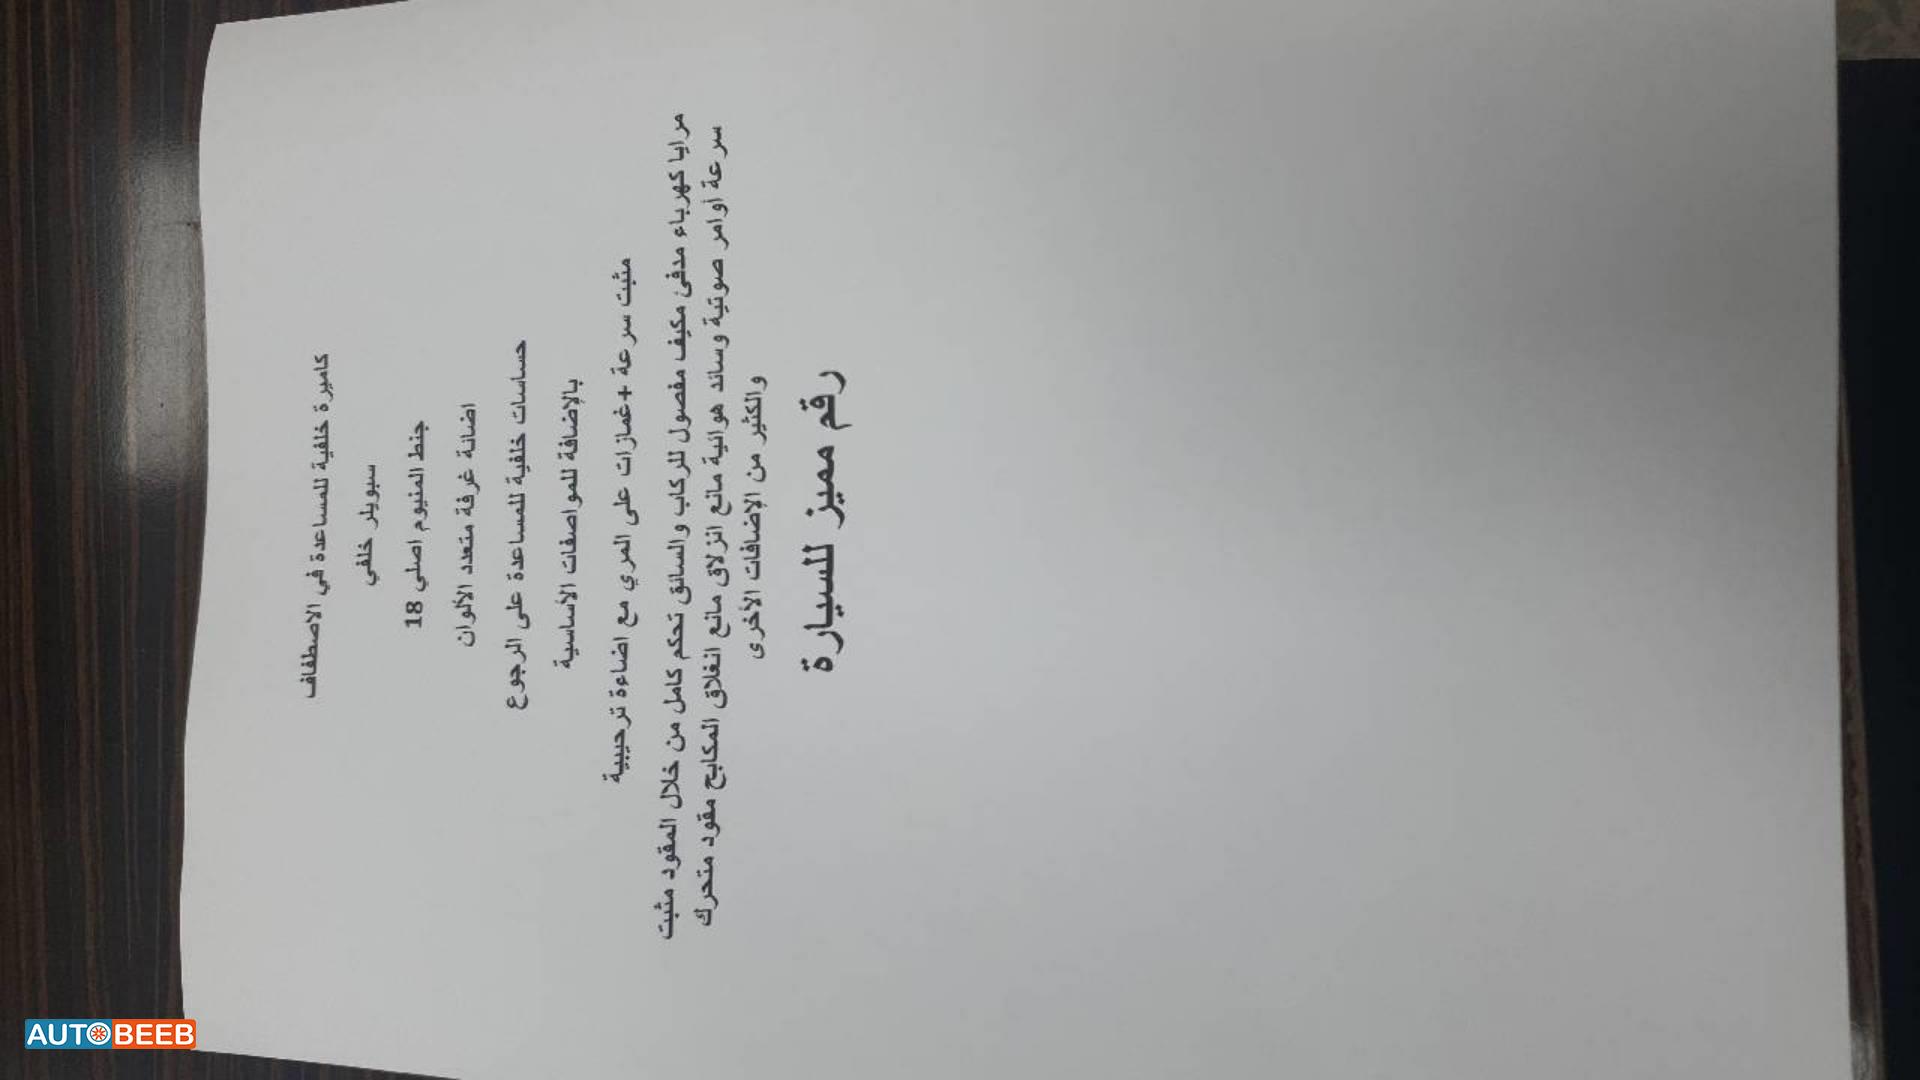 كاميرة خلفية للمساعدة في الاصطفاف
سبويلر خلفي
جنط المنيوم اصلي 18
اضائة غرفة متعدد الألوان
حساسات خلفية للمساعدة على الرجوع
بالإضافة للمواصفات الأساسية
مثبت سرعة +غمازات على المري مع اضاءة ترحيبية
مرايا كهرباء مدفئ مكيف مفصول للركاب والسائق تحكم كامل من خلال المقود مثبت
سرعة أوامر صوتية وسائد هوائية مانع انزلاق مانع انغلاق المكابح مقود متحرك
والكثير من الإضافات الأخرى
رقم مميز للسيارة
AUTOBEEB